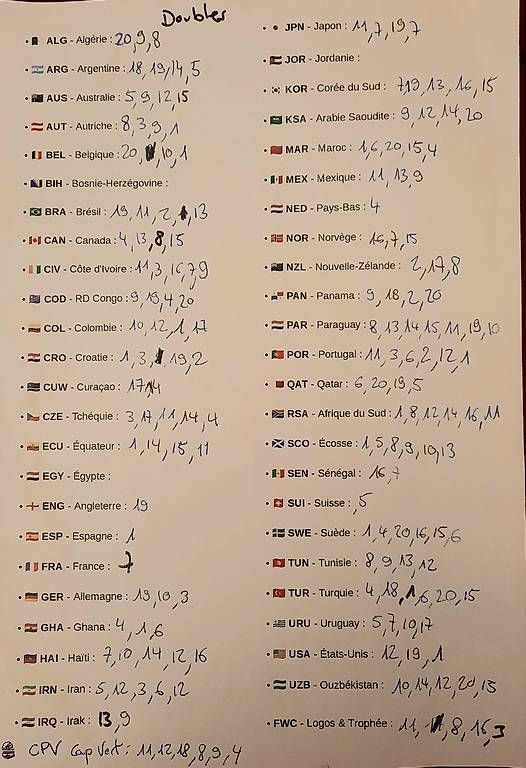 Doubles
• ALG - Algérie : 20, 9, 8
• ARG - Argentine : 18, 19, 14, 5
• AUS - Australie : 5, 9, 12, 15
• AUT - Autriche : 8, 3, 9, 1
• BEL - Belgique : 20, 10, 1
• BIH - Bosnie-Herzégovine :
• BRA - Brésil : 19, 11, 2, 13
• CAN - Canada : 4, 13, 8, 15
• CIV - Côte d'Ivoire : 11, 3, 16, 7, 9
• COD - RD Congo : 9, 19, 4, 20
• COL - Colombie : 10, 12, 1, 17
• CRO - Croatie : 1, 3, 19, 2
• CUW - Curaçao : 17, 14
• CZE - Tchéquie : 3, 17, 11, 14, 4
• ECU - Équateur : 1, 14, 15, 11
• EGY - Égypte :
• ENG - Angleterre : 19
• ESP - Espagne : 1
• FRA - France : 7
• GER - Allemagne : 19, 10, 3
• GHA - Ghana : 4, 1, 6
• HAI - Haïti : 7, 10, 14, 12, 16
• IRN - Iran : 5, 12, 3, 6, 12
• IRQ - Irak : 13, 9
CPV Cap Vert : 11, 12, 18, 8, 9, 4
• JPN - Japon : 11, 7, 19, 7
• JOR - Jordanie :
• KOR - Corée du Sud : 7, 19, 13, 16, 15
• KSA - Arabie Saoudite : 9, 12, 14, 20
• MAR - Maroc : 1, 6, 20, 15, 4
• MEX - Mexique : 11, 13, 9
• NED - Pays-Bas : 4
• NOR - Norvège : 16, 7, 15
• NZL - Nouvelle-Zélande : 2, 17, 8
• PAN - Panama : 9, 18, 2, 20
• PAR - Paraguay : 8, 13, 14, 15, 11, 19, 10
• POR - Portugal : 11, 3, 6, 2, 12, 1
• QAT - Qatar : 6, 20, 19, 5
• RSA - Afrique du Sud : 1, 8, 12, 14, 16, 11
• SCO - Écosse : 1, 5, 8, 9, 10, 13
• SEN - Sénégal : 16, 7
• SUI - Suisse : 5
• SWE - Suède : 1, 4, 20, 16, 15, 6
• TUN - Tunisie : 8, 9, 13, 12
• TUR - Turquie : 4, 18, 1, 6, 20, 15
• URU - Uruguay : 5, 7, 10, 17
• USA - États-Unis : 12, 19, 1
• UZB - Ouzbékistan : 10, 14, 12, 20, 13
• FWC - Logos & Trophée : 11, 8, 16, 3